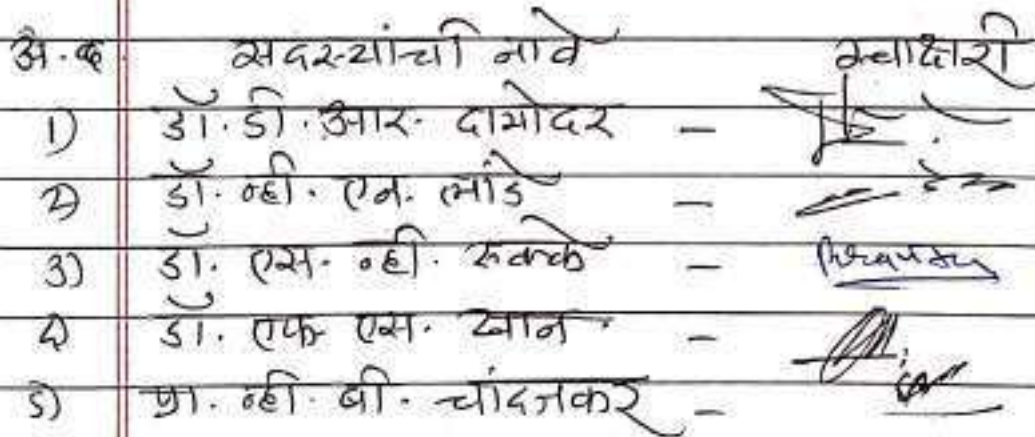 अ.क्र सदस्यांची नावे स्वाक्षरी
1) डॉ. डी. आर. दामोदर -
2) डॉ. व्ही. एन. लांडे -
3) डॉ. एस. व्ही. -
4) डॉ. एफ एस. खान -
5) प्रा. व्ही. बी. चांदजकर -